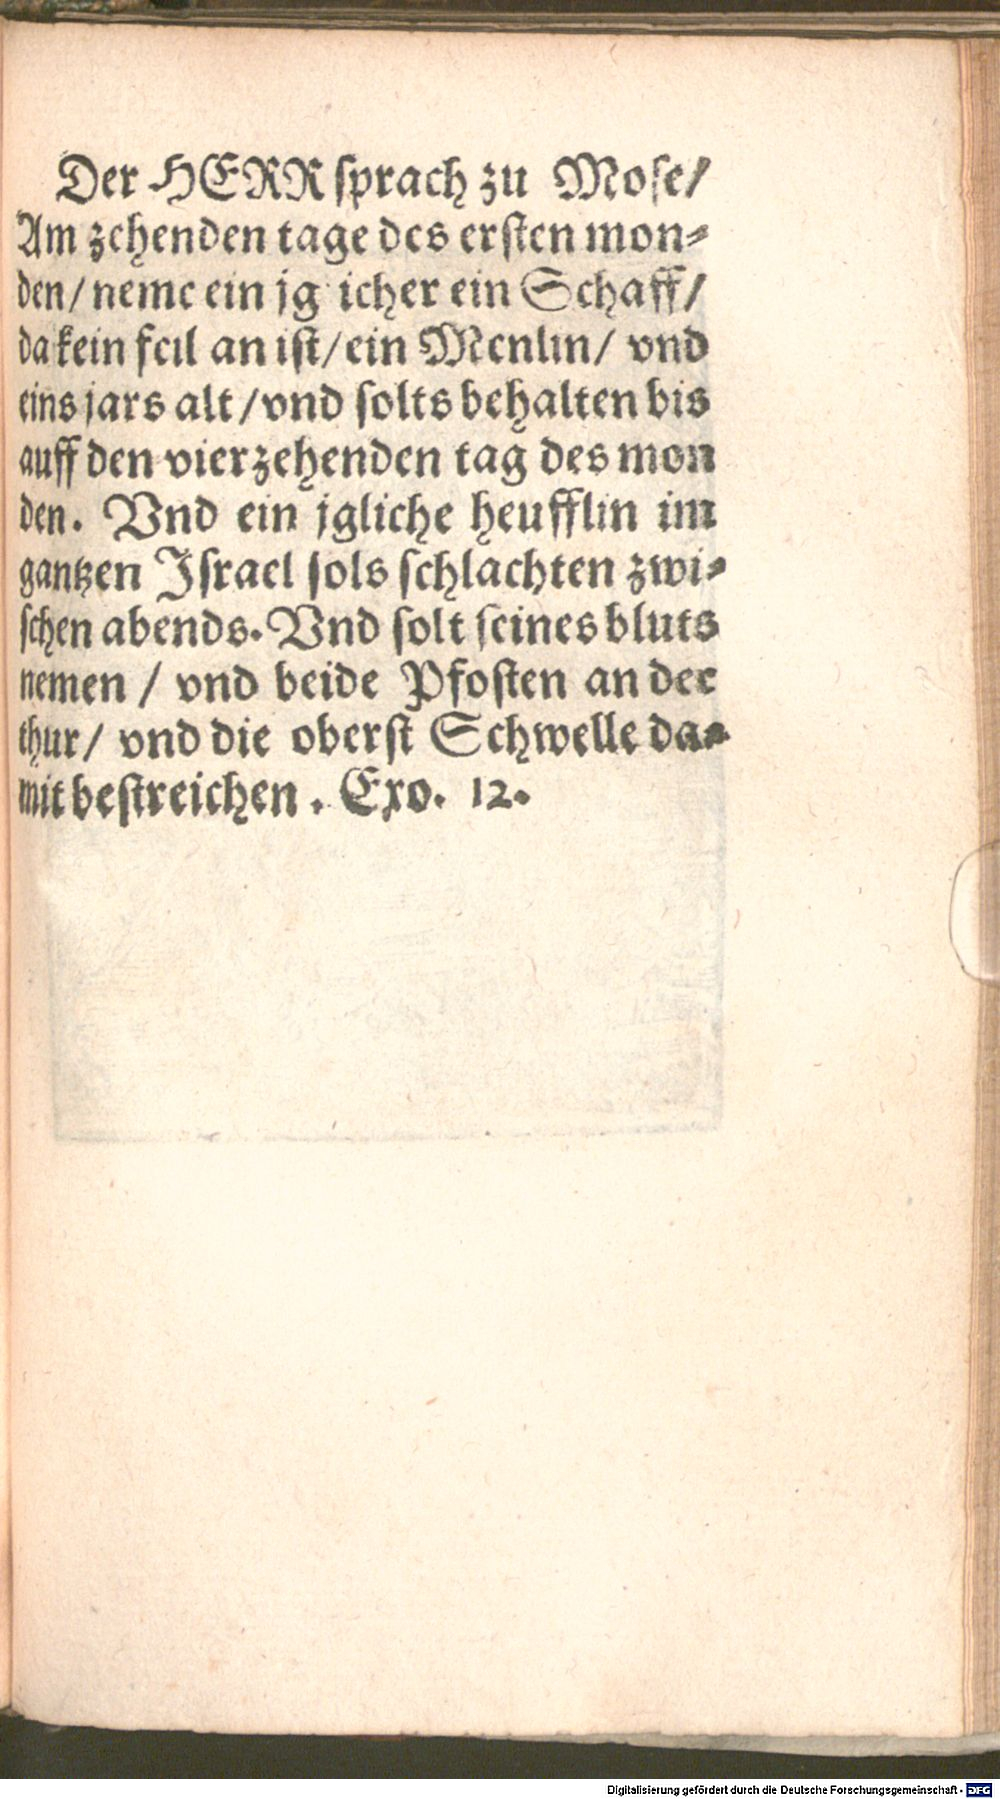 Der HERR ſprach zu Moſe/
Am zehenden tage des erſten mon⸗
den/ neme ein jg icher ein Schaff/
da kein feil an iſt/ ein Menlin/ vnd
eins jars alt/ vnd ſolts behalten bis
auff den vierzehenden tag des mon
den. Vnd ein jgliche heufflin im
gantzen Iſrael ſols ſchlachten zwi⸗
ſchen abends. Vnd ſolt ſeines bluts
nemen / vnd beide Pfoſten an der
thur/ vnd die oberſt Schwelle da⸗
mit beſtreichen. Exo. 12.
Digitalisierung gefördert durch die Deutsche Forschungsgemeinschaft - DFG